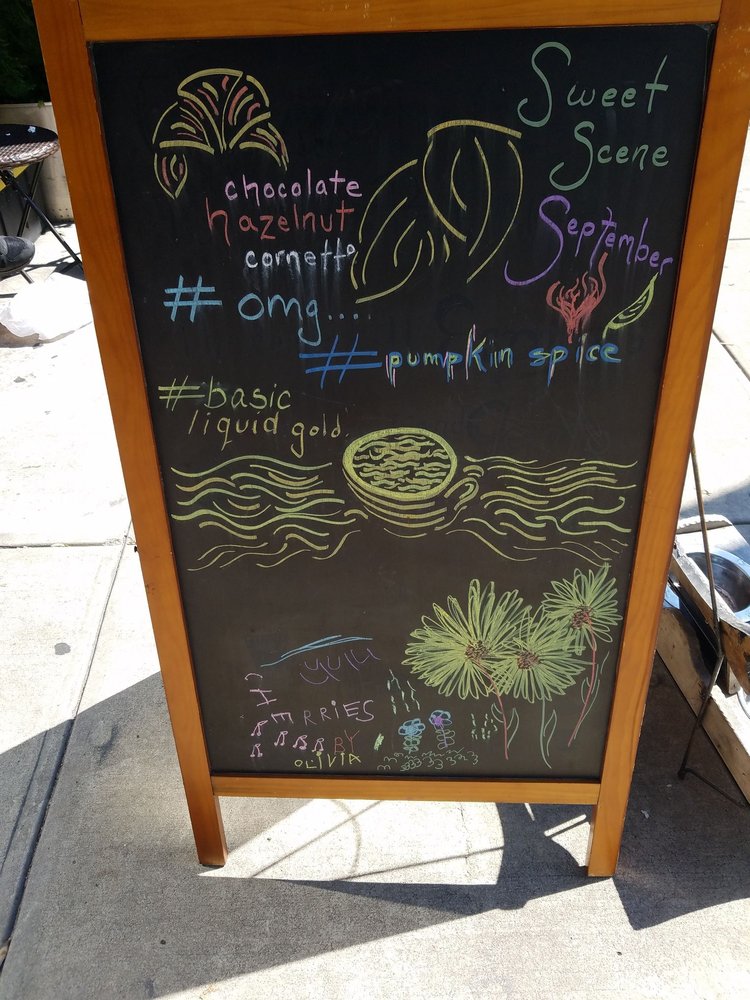 Sweet
Scene
September
chocolate
hazelnut
cornetto
# omg....
# pumpkin spice
#basic
liquid gold.
CHERRIES
BY
OLIVIA